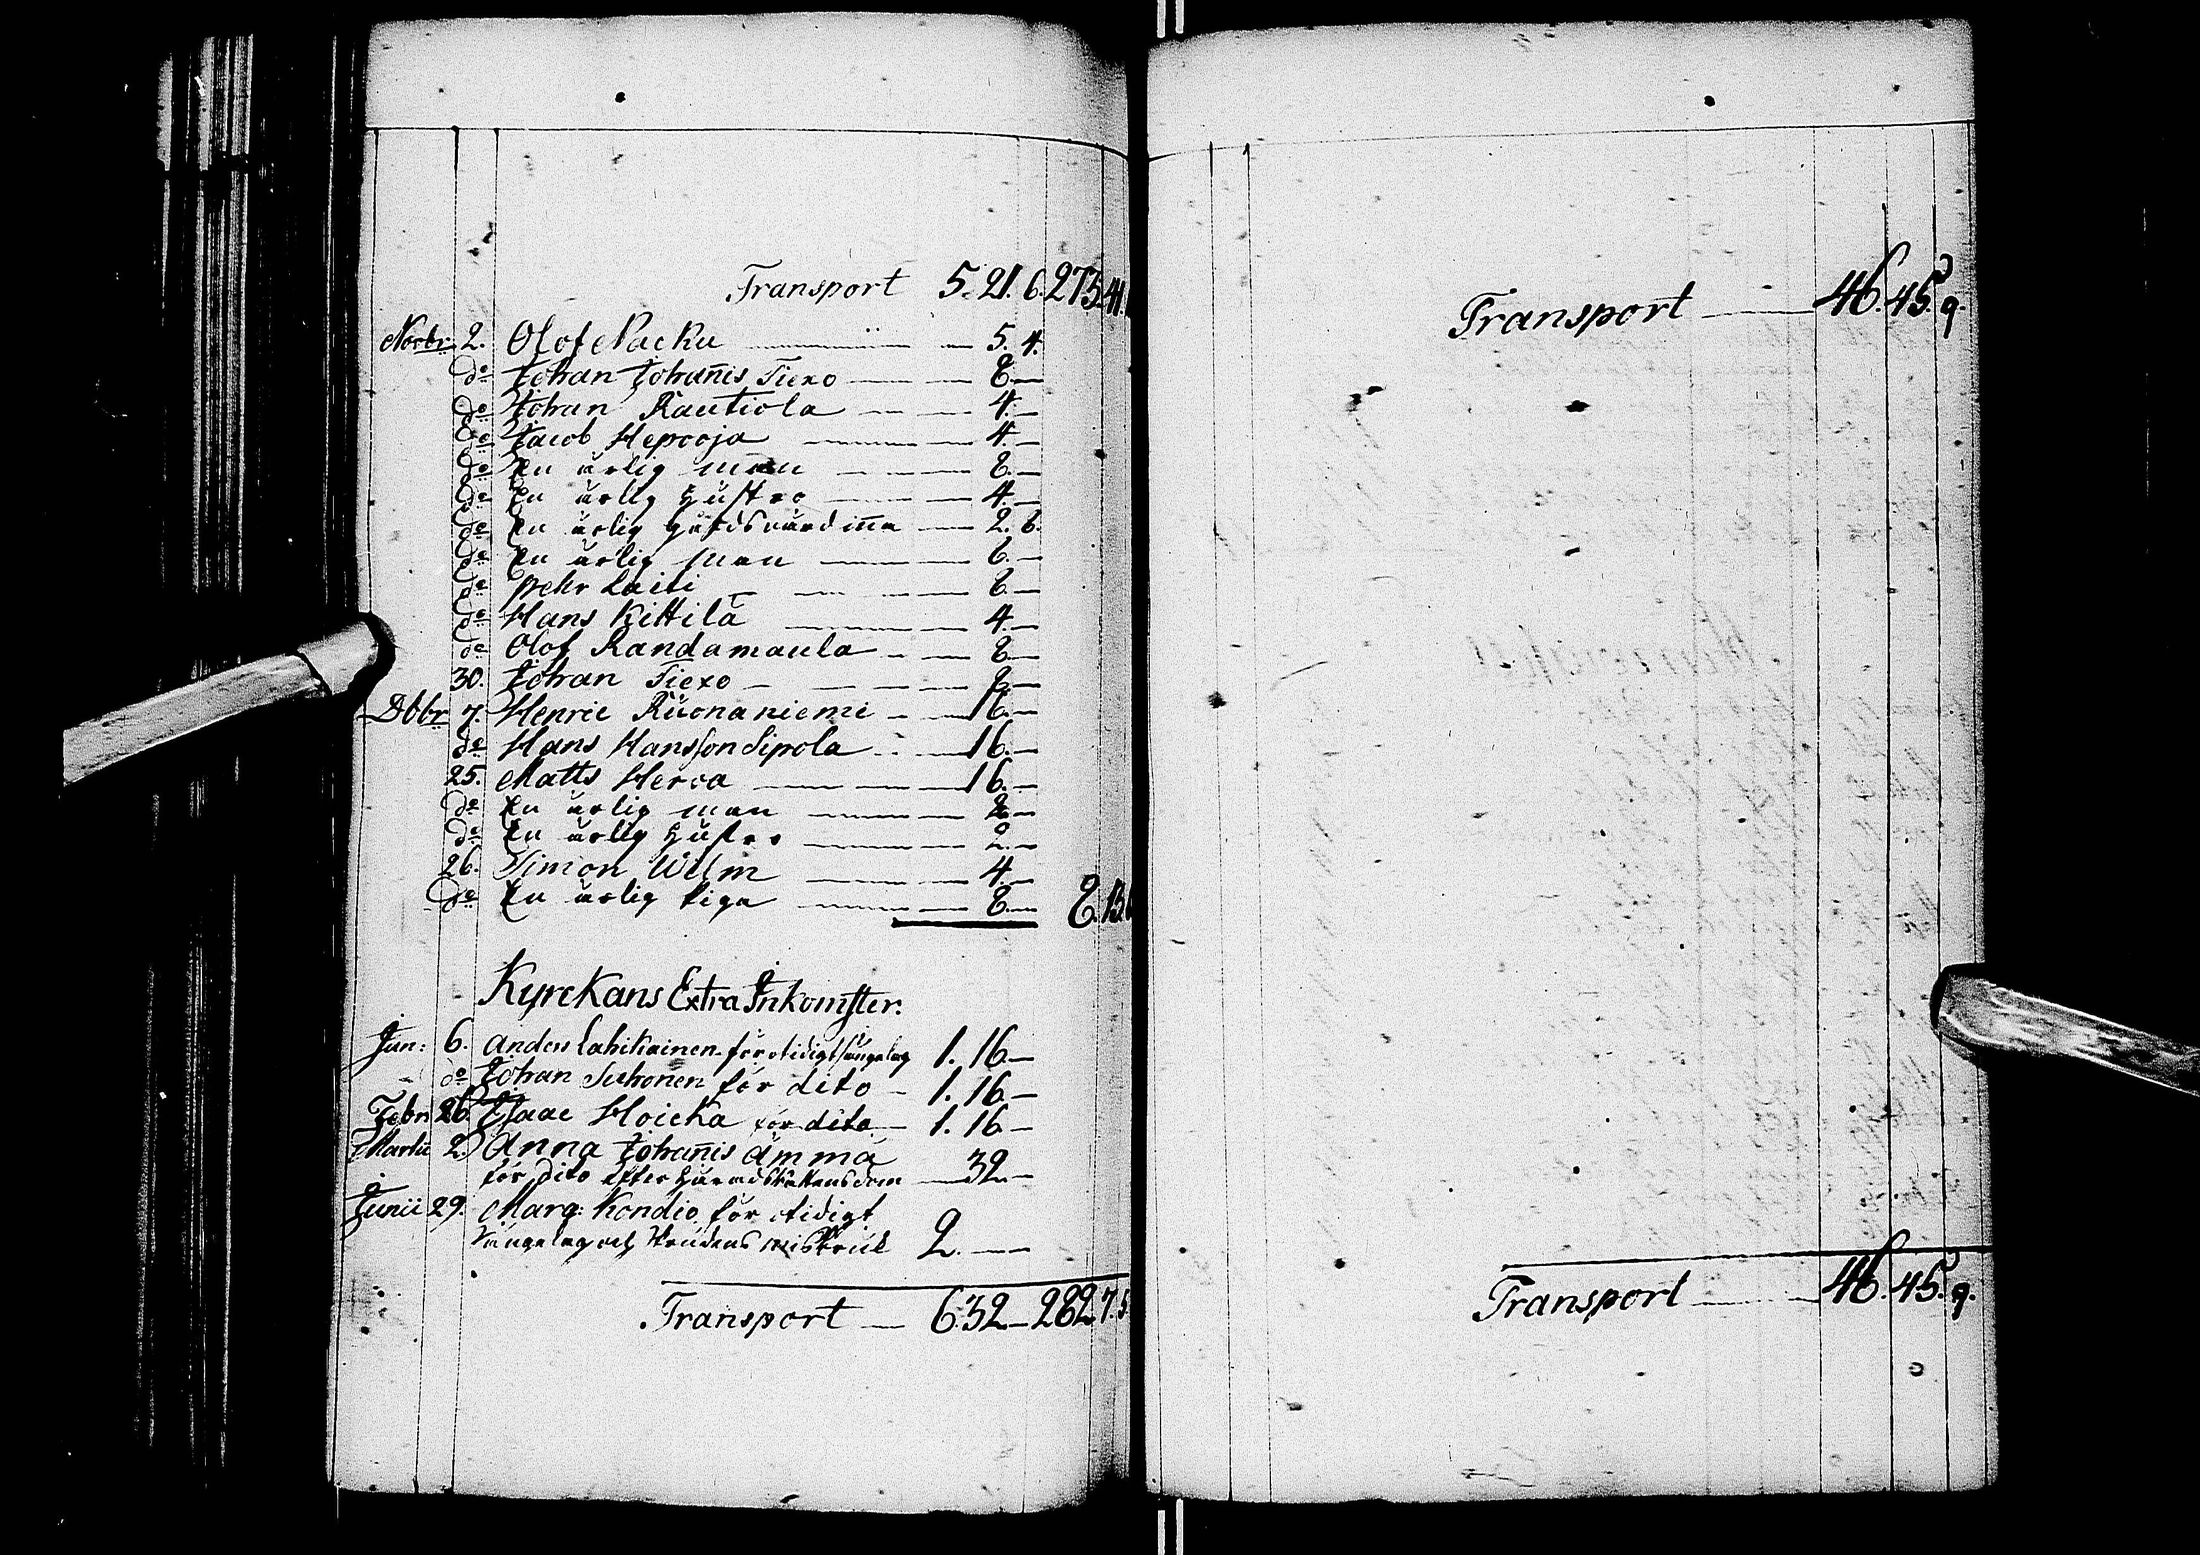 Transport 5. 21. 6. 273. 41.
Novbr 2. Olof Packu — 5. 4.
do Johan Johannis Tiexo — 8. —
do Johan Rautiola — 4. —
do Jacob Heporoja — 4. —
do En ärlig man — 8. —
do En ärlig Hustro — 4. —
do En ärlig gårdsvärdinna — 2. 6.
do En ärlig man — 6. —
do Pehr Laiti — 8. —
do Hans Kittilä — 4. —
do Olof Randamaula — 8. —
30. Johan Tiexo — 8. —
Dbbr 7. Henric Ruonaniemi — 16. —
do Hans Hansson Sipola — 16. —
25. Matts Herva — 16. —
do En ärlig man — 8. —
do En ärlig Hustro — 2. —
26. Simon Wilm — 4. —
do En ärlig Piga — 8. — 8. 13.
Kyrckans Extra Inkomster.
Jan: 6. Anders Lahikainen för otidigt sängelag 1. 16 —
do Johan Suhonen för dito — 1. 16 —
Febr 26. Isaac Hoicka för dito — 1. 16 —
Martii 2. Anna Johannis Ämmä
för dito efter Häradsrättens dom — 32 —
Junii 29. Marg: Kondio för otidigt
sängelag och skrudens missbruk 2. —
Transport — 6. 32 — 282. 7. 5
Transport — 46. 45. 9.
Transport — 46. 45. 9.